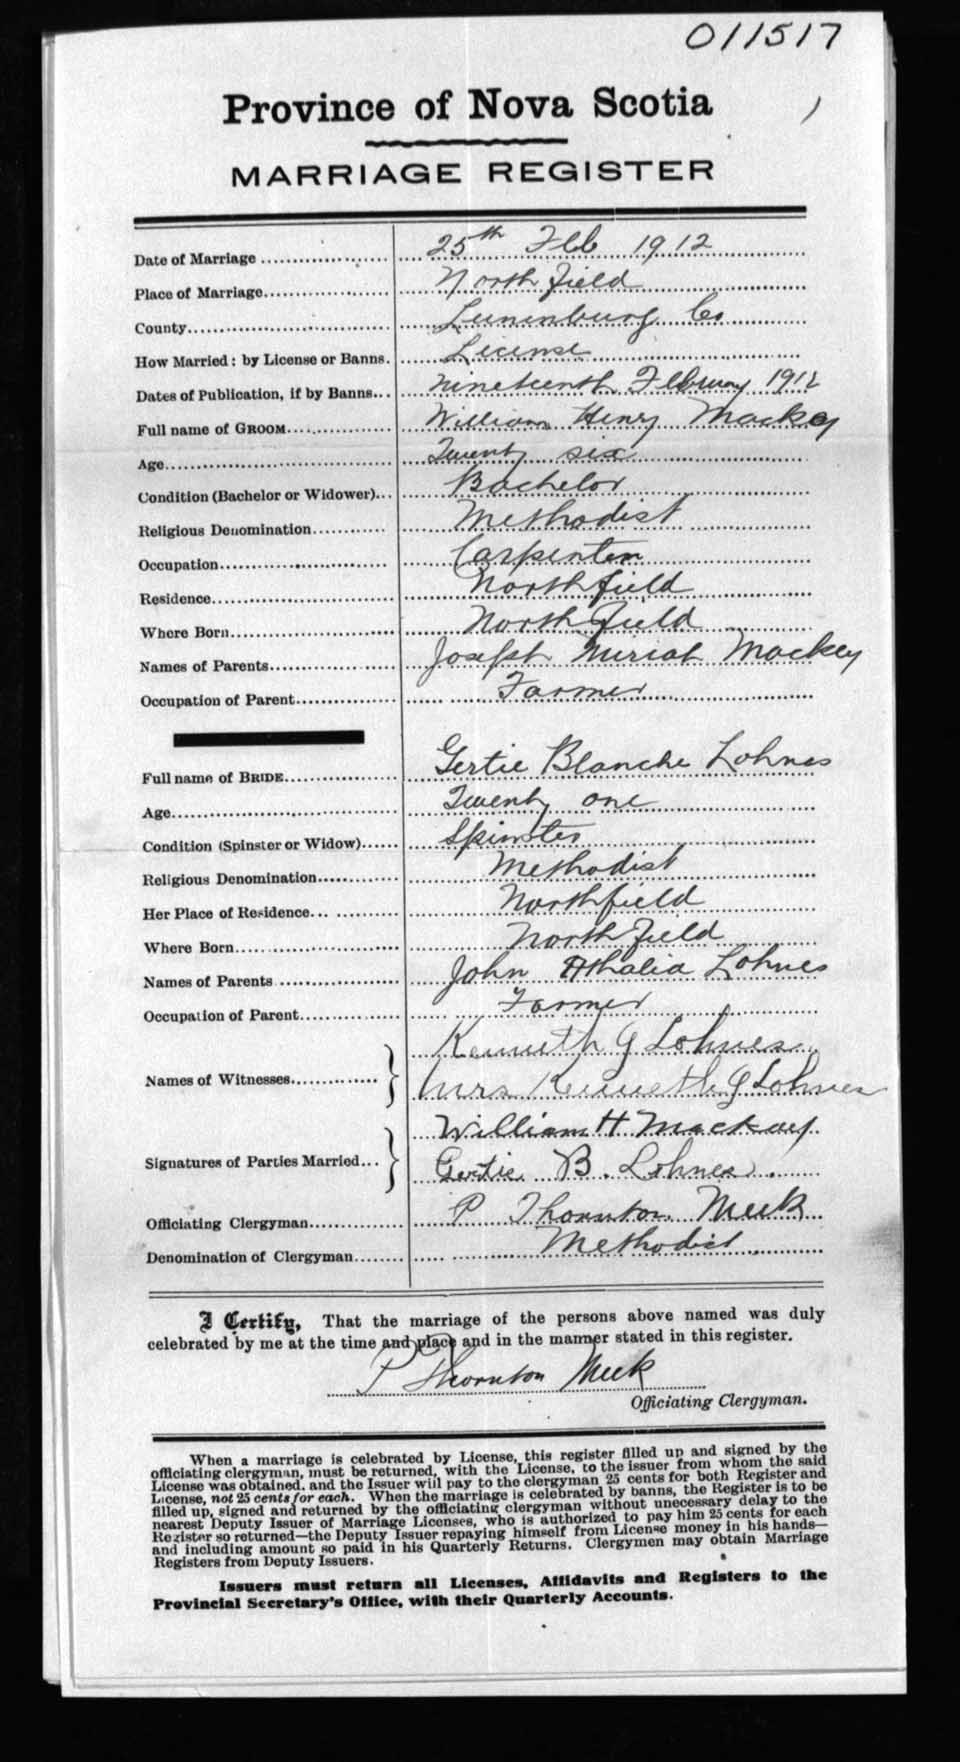 011517
Province of Nova Scotia
MARRIAGE REGISTER
Date of Marriage 25th Feb 1912
Place of Marriage North field
County Lunenburg Co
How Married: by License or Banns. License
Dates of Publication, if by Banns Nineteenth February 1912
Full name of GROOM William Henry Mackey
Age Twenty six
Condition (Bachelor or Widower) Bachelor
Religious Denomination Methodist
Occupation Carpenter
Residence Northfield
Where Born North field
Names of Parents Joseph Miriah Mackey
Occupation of Parent Farmer
Full name of BRIDE Gertie Blanche Lohnes
Age Twenty one
Condition (Spinster or Widow) Spinster
Religious Denomination Methodist
Her Place of Residence Northfield
Where Born North field
Names of Parents John Athalia Lohnes
Occupation of Parent Farmer
Names of Witnesses Kenneth G Lohnes
Mrs Kenneth G Lohnes
Signatures of Parties Married William H Mackay
Gertie B. Lohnes
Officiating Clergyman P Thornton Meek
Denomination of Clergyman Methodist
I Certify, That the marriage of the persons above named was duly
celebrated by me at the time and place and in the manner stated in this register.
P Thornton Meek
Officiating Clergyman.
When a marriage is celebrated by License, this register filled up and signed by the
officiating clergyman, must be returned, with the License, to the issuer from whom the said
License was obtained, and the Issuer will pay to the clergyman 25 cents for both Register and
License, not 25 cents for each. When the marriage is celebrated by banns, the Register is to be
filled up, signed and returned by the officiating clergyman without unnecessary delay to the
nearest Deputy Issuer of Marriage Licenses, who is authorized to pay him 25 cents for each
Register so returned—the Deputy Issuer repaying himself from License money in his hands—
and including amount so paid in his Quarterly Returns. Clergymen may obtain Marriage
Registers from Deputy Issuers.
Issuers must return all Licenses, Affidavits and Registers to the
Provincial Secretary's Office, with their Quarterly Accounts.